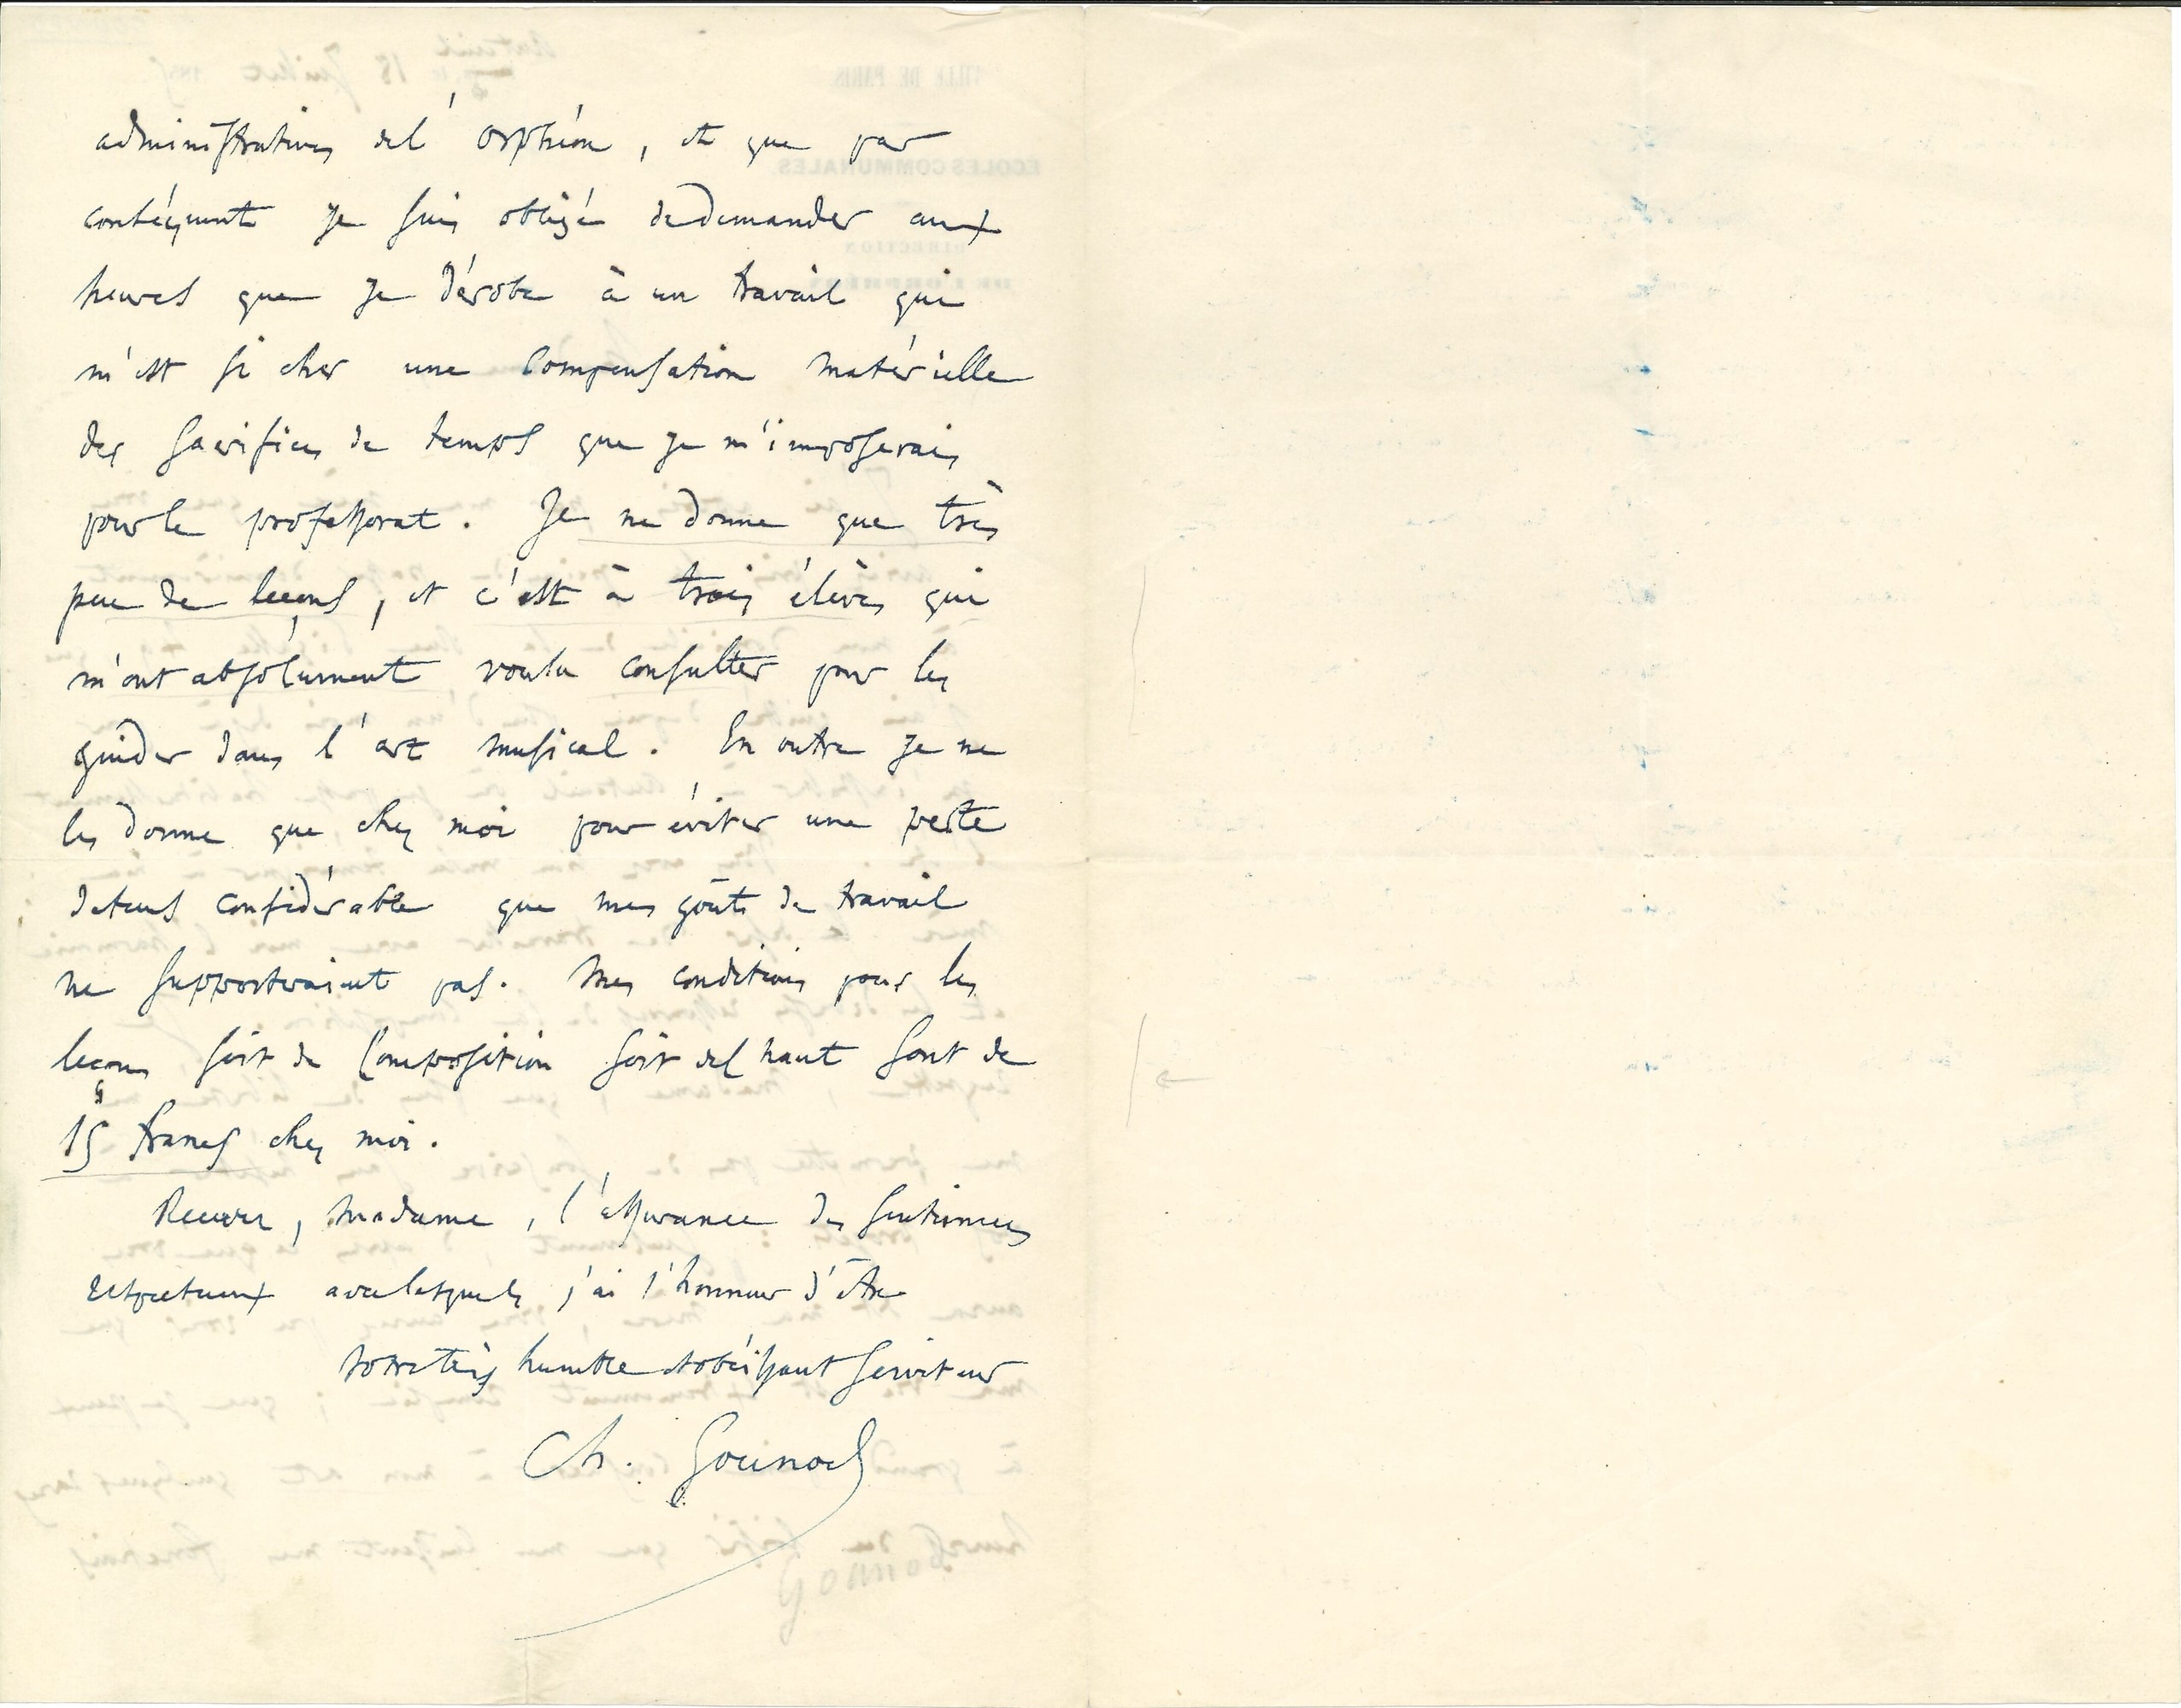 administratives de l'orphéon, et que par
conséquent je suis obligé de demander aux
heures que je dérobe à un travail qui
m'est si cher une compensation matérielle
des sacrifices de temps que je m'imposerais
pour le professorat. Je ne donne que très
peu de leçons, et c'est à trois élèves qui
m'ont absolument voulu consulter pour les
guider dans l'art musical. En outre je ne
les donne que chez moi pour éviter une perte
de tems considérable que mes goûts de travail
ne supporteraient pas. Mes conditions pour les
leçons soit de composition soit de chant sont de
15 francs chez moi.
Recevez, madame, l'assurance des sentimens
respectueux avec lesquels j'ai l'honneur d'être
votre très humble et obéissant serviteur
Ch. Gounod
Gounod